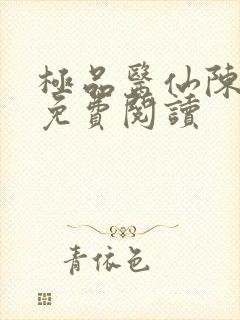 極品醫仙陳
免費閱讀
青依色